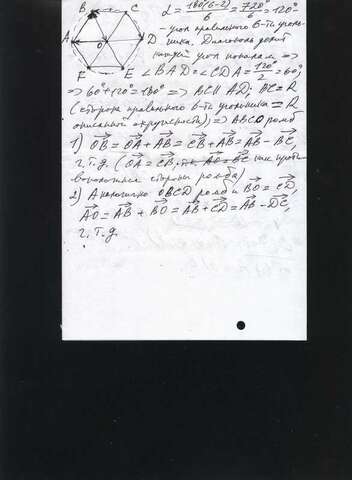 B C
α = 180(6-2)/6 = 720/6 = 120° -
угол правильного 6-ти уголь-
A O D ника. Диагональ делит
каждый угол пополам =>
F E ∠BAD = ∠CDA = 120°/2 = 60°;
=> 60° + 120° = 180° => BC ∥ AD; BC = R
(сторона правильного 6-ти угольника = R
описанной окружности) => ABCO ромб
1) OB = OA + AB = CB + AB = AB - BC,
ч.т.д. (OA = CB, т.к. AO = BC как проти-
воположные стороны ромба)
2) Аналогично OBCD ромб и BO = CD,
AO = AB + BO = AB + CD = AB - DC,
ч.т.д.